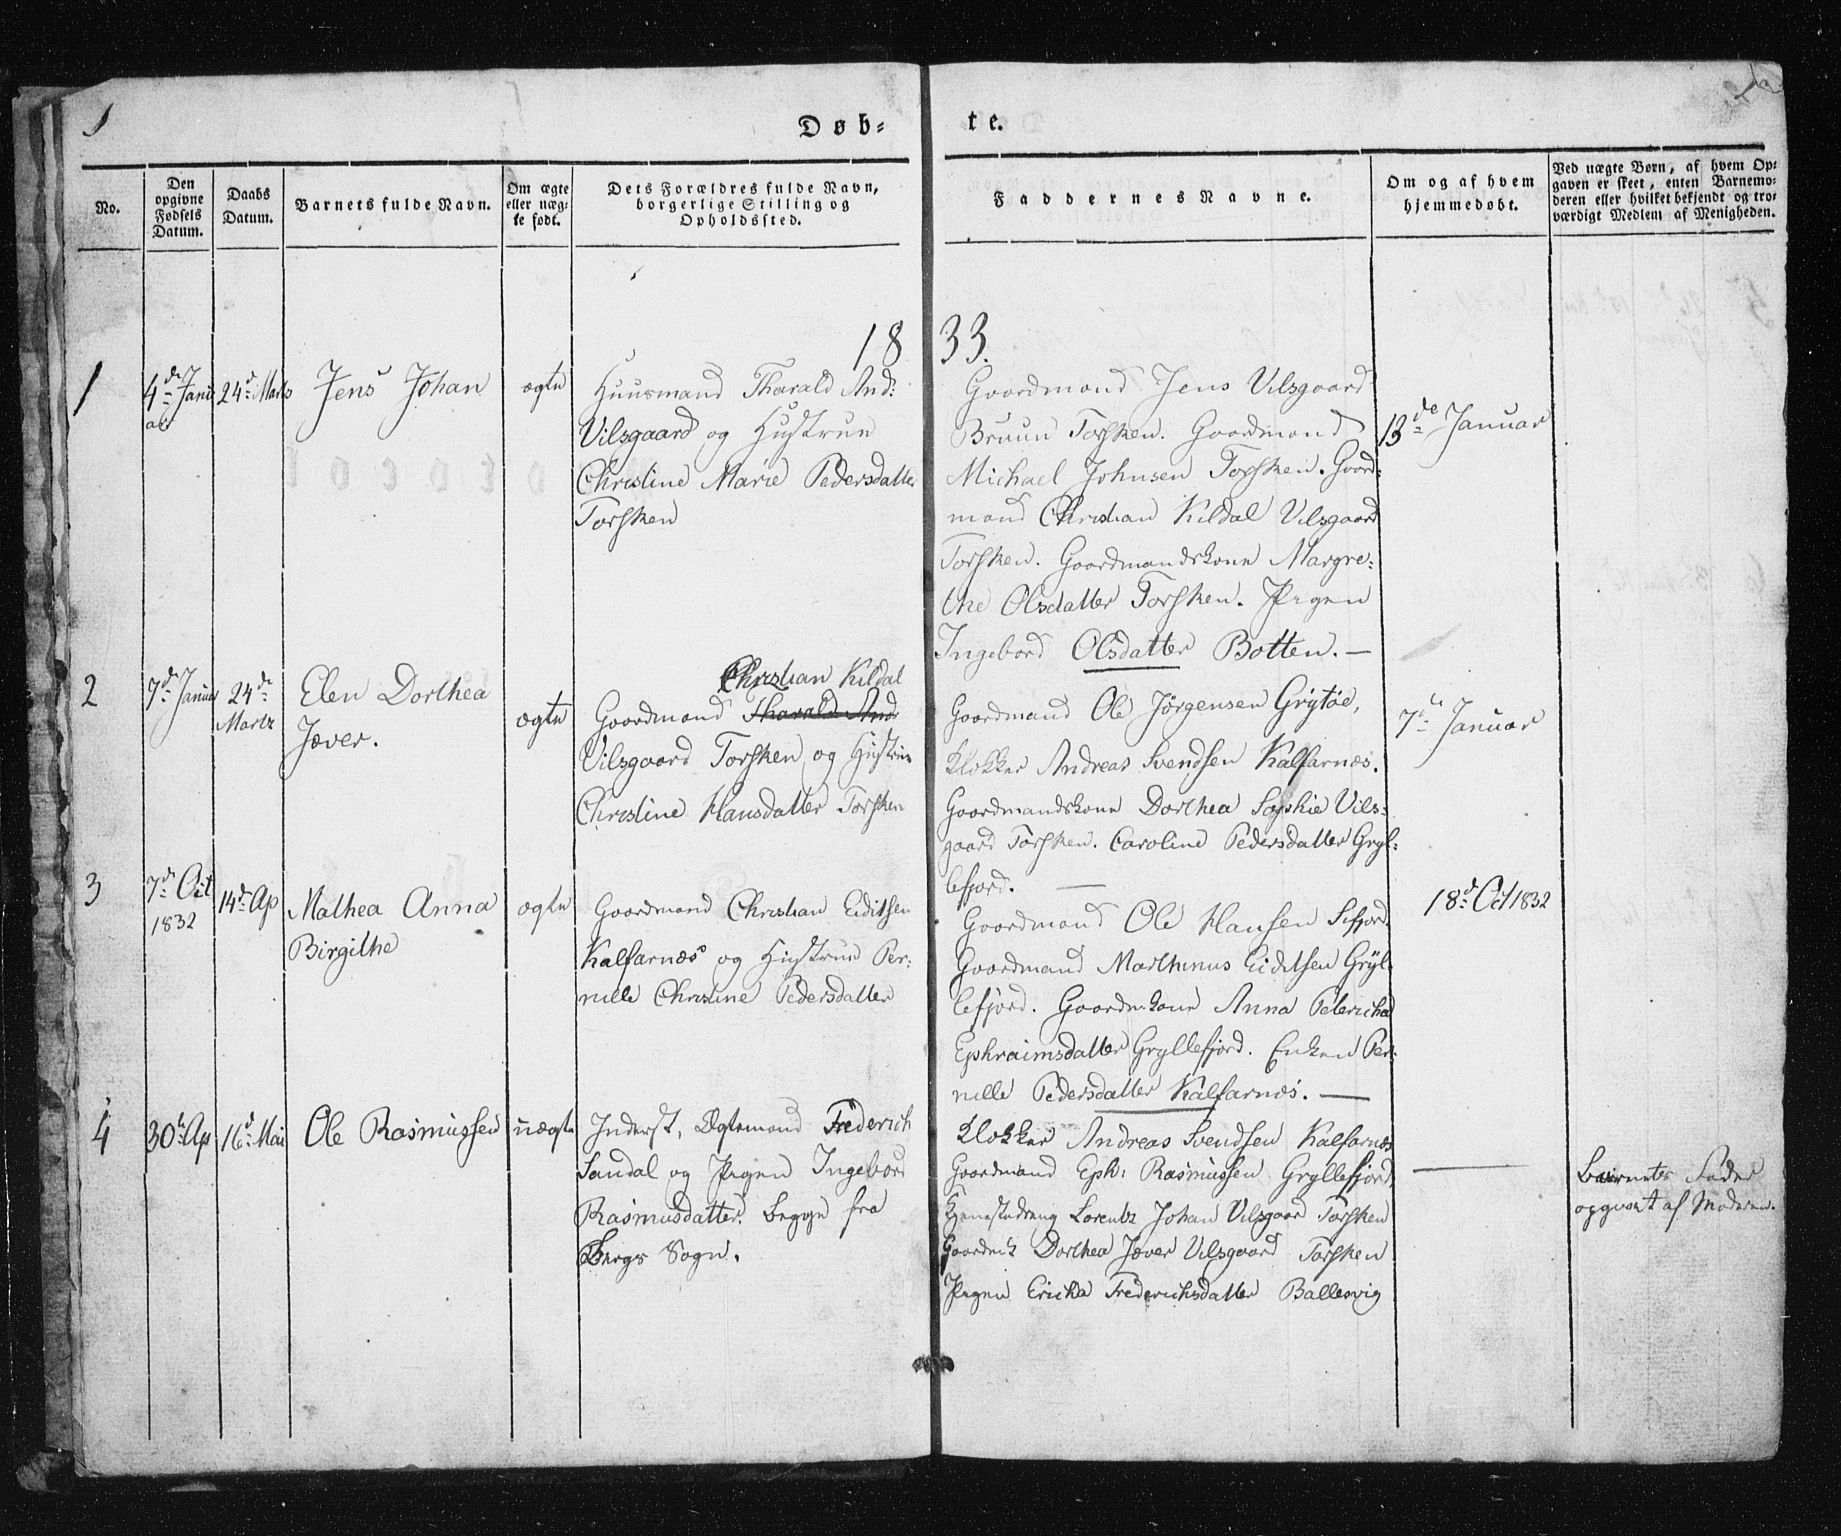 1
Døb-
te.
No.
Den
opgivne
Fødsels
Datum.
Daabs
Datum.
Barnets fulde Navn.
Om ægte
eller uæg-
te født.
Dets Forældres fulde Navn,
borgerlige Stilling og
Opholdssted.
Faddernes Navne.
Om og af hvem
hjemmedøbt.
Ved uægte Børn, af hvem Op-
gaven er skeet, enten Barnemo-
deren eller hvilket bekjendt og tro-
værdigt Medlem af Menigheden.
18
33.
1
4de Janu
ar
24d Marts
Jens Johan
ægte
Huusmand Tharald And:
Vilsgaard og Hustrue
Christine Marie Pedersdatter
Torsken
Gaardmand Jens Vilsgaard
Bruun Torsken. Gaardmand
Michael Johnsen Torsken. Gaard-
mand Christian Kildal Vilsgaard
Torsken. Gaardmandskone Margre-
the Olsdatter Torsken. Pigen
Ingebord Olsdatter Botten. —
13de Januar
2
7de Januar
24de
Marts
Elen Dorthea
Jæver.
ægte
Christian Kildal
Gaardmand Tharald And:
Vilsgaard Torsken og Hustrue
Christine Hansdatter Torsken
Gaardmand Ole Jörgensen Grÿtöe,
Klokker Andreas Svendsen Kalfarnæs.
Gaardmandskone Dorthea Sophie Vils-
gaard Torsken. Caroline Pedersdatter Gryl-
lefjord. —
7de Januar
3
7de Oct
1832
14d Ap
Mathea Anna
Birgithe
ægte
Gaardmand Christian Eiditsen
Kalfarnæs og Hustrue Per-
nille Christine Pedersdatter
Gaardmand Ole Hansen Sifjord.
Gaardmand Marthinus Eiditsen Grÿl-
lefjord. Gaardm:kone Anna Petericha
Ephraimsdatter Gryllefjord. Enken Per-
nille Pedersdatter Kalfarnæs. —
18d Oct 1832
4
30te Ap
16d Mai
Ole Rasmussen
uægte
Inderst, Ægtemand Frederich
Sandal og Pigen Ingebord
Rasmusdatter. Begge fra
Bergs Sogn.
Klokker Andreas Svendsen Kalfarnæs
Gaardmand Eph: Rasmussen Gryllefjord,
Tjenestedreng Lorentz Johan Vilsgaar Torsken
Dorthea Jæver Vilsgaard Torsken
Pigen Ericka Frederichsdatter Ballesvig
Barnets Fader
opgivet af Moderen.